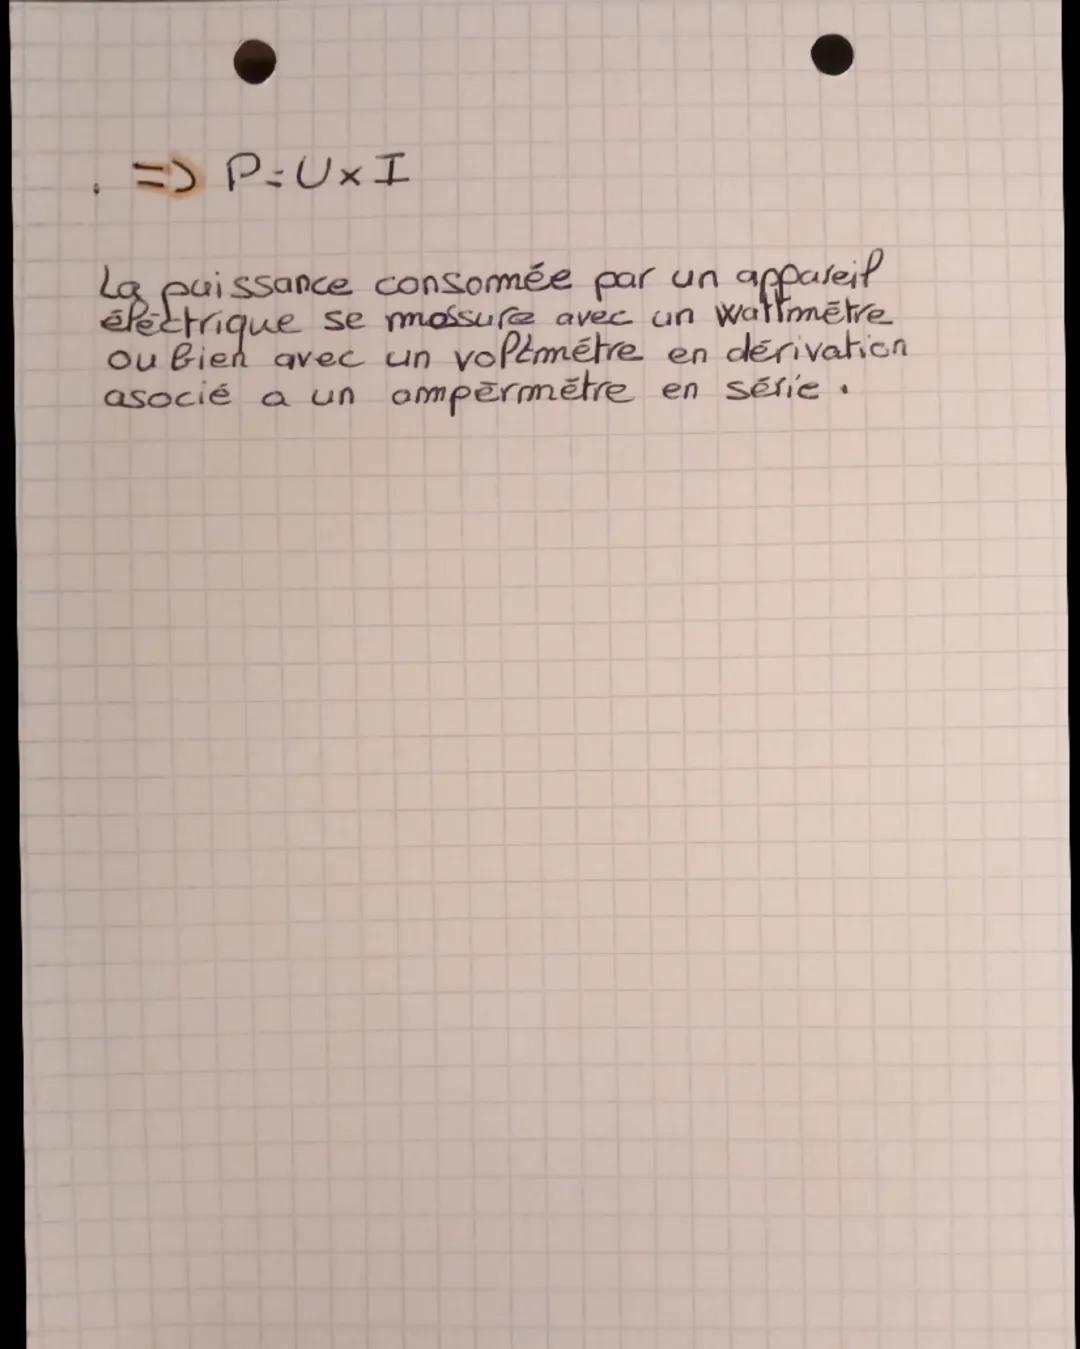 . => P=U×I
La puissance consomée par un appareil
éléctrique se messure avec un wattmètre
ou bien avec un voltmètre en dérivation
asocié a un ampèrmètre en série .